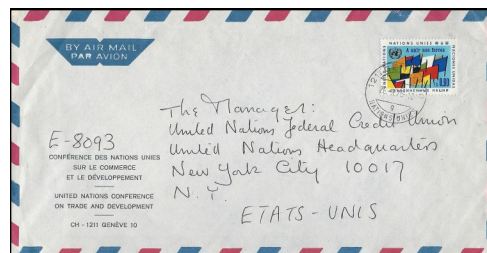 BY AIR MAIL
PAR AVION
NATIONS UNIES
The Manager:
United Nations Federal Credit Union
United Nations Headquarters
New York City 10017
N.Y.
ETATS-UNIS
E-8093
CONFÉRENCE DES NATIONS UNIES
SUR LE COMMERCE
ET LE DÉVELOPPEMENT
UNITED NATIONS CONFERENCE
ON TRADE AND DEVELOPMENT
CH - 1211 GENÈVE 10